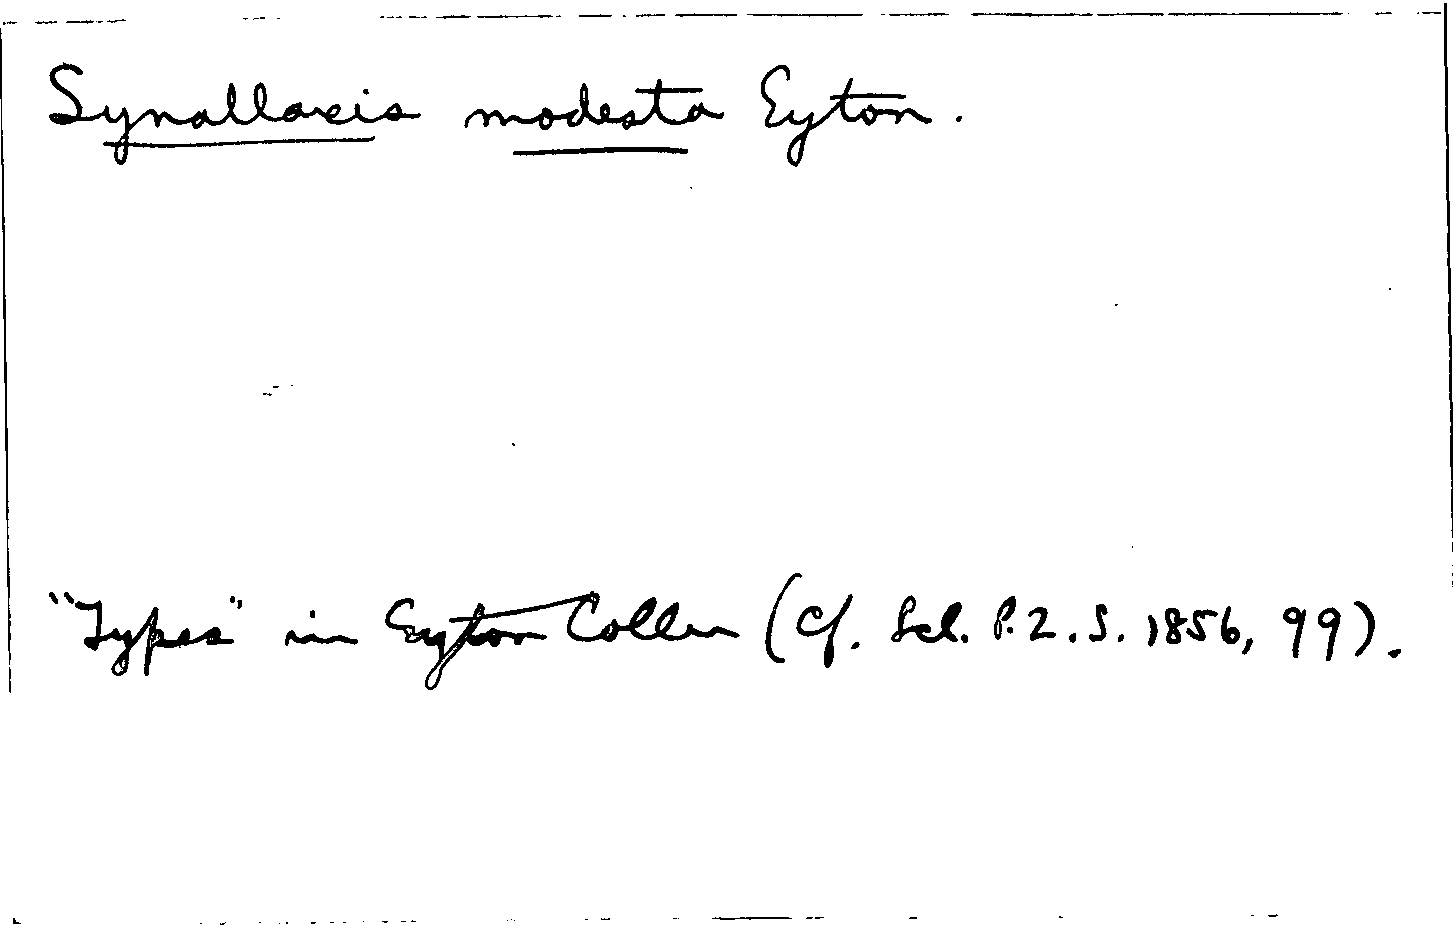 Synallaxis modesta Eyton.
"Types" in Eyton Colln (Cf. Scl. P.Z.S. 1856, 99).